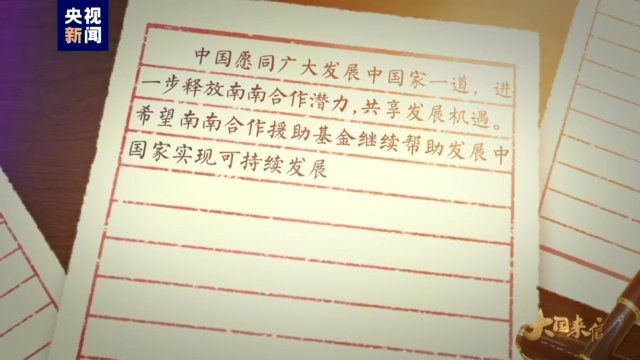 央视
新闻
中国愿同广大发展中国家一道，进
一步释放南南合作潜力,共享发展机遇。
希望南南合作援助基金继续帮助发展中
国家实现可持续发展
大国来信